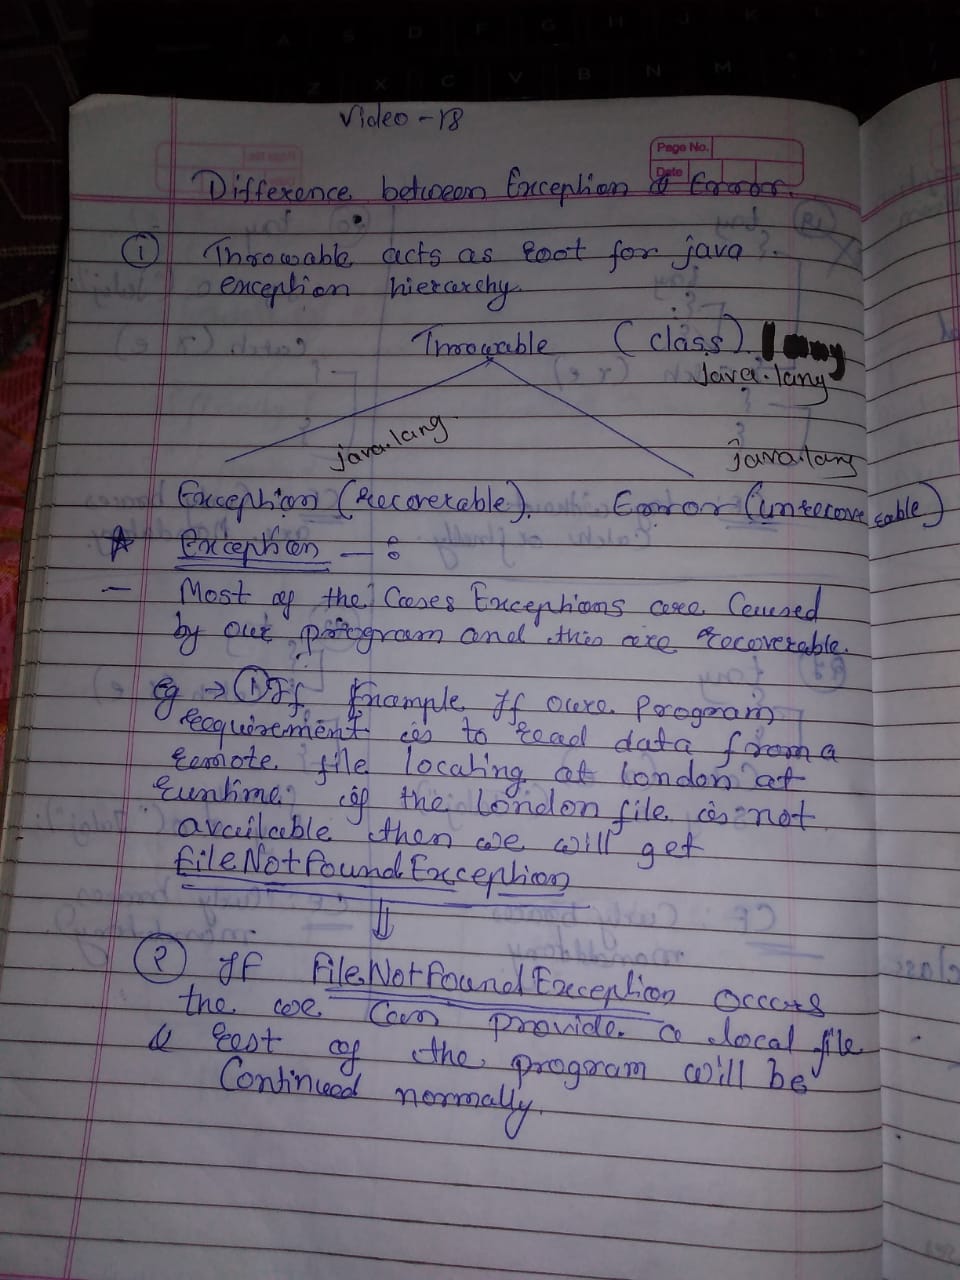 Video - 18
Page No.
Date
Difference between Exception & Error.
① Throwable acts as root for java
exception hierarchy.
Throwable (class)
java.lang
java.lang
java.lang
Exception (Recoverable). Error (unrecoverable)
Exception - :
- Most of the Cases Exceptions are Caused
by our program and this are recoverable.
Eg → ① If Example If our Program
requirement is to read data from a
remote file locating at London at
runtime; if the London file is not
available then we will get
FileNotFoundException
② If FileNotFoundException occurs
the we Can provide a local file
& rest of the program will be
Continued normally.